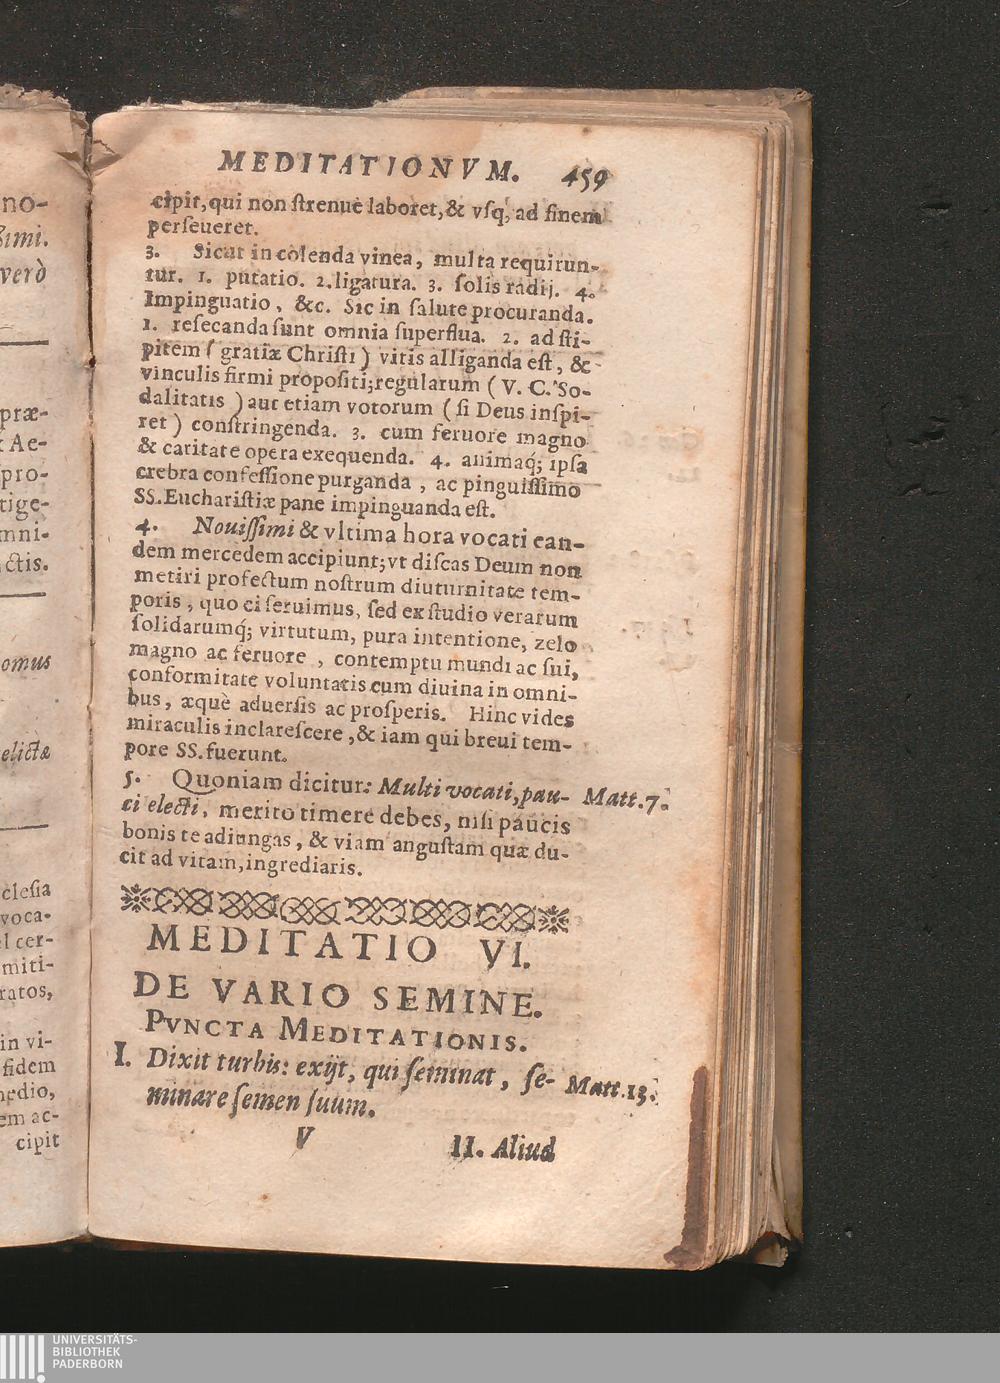 no-
simi.
verò
præ-
Ae-
pro-
tige-
mni-
ctis.
omus
elictæ
clesia
voca-
l cer-
miti-
ratos,
in vi-
fidem
nedio,
em ac-
cipit
MEDITATIONVM. 459
cipit, qui non ſtrenuè laboret, & vſq; ad finem
perſeueret.
3. Sicut in colenda vinea, multa requirun-
tur. 1. putatio. 2. ligatura. 3. ſolis radij. 4.
Impinguatio, &c. Sic in ſalute procuranda.
1. reſecanda ſunt omnia ſuperflua. 2. ad ſti-
pitem (gratiæ Chriſti) vitis alliganda eſt, &
vinculis firmi propoſiti; regularum (V. C. So-
dalitatis) aut etiam votorum (ſi Deus inſpi-
ret) conſtringenda. 3. cum feruore magno
& caritate opera exequenda. 4. animaq́; ipſa
crebra confeſſione purganda, ac pinguiſſimo
SS. Euchariſtiæ pane impinguanda eſt.
4. Nouiſſimi & vltima hora vocati ean-
dem mercedem accipiunt; vt diſcas Deum non
metiri profectum noſtrum diuturnitate tem-
poris, quo ei ſeruimus, ſed ex ſtudio verarum
ſolidarumq́; virtutum, pura intentione, zelo
magno ac feruore, contemptu mundi ac ſui,
conformitate voluntatis cum diuina in omni-
bus, æquè aduerſis ac proſperis. Hinc vides
miraculis inclareſcere, & iam qui breui tem-
pore SS. fuerunt.
5. Quoniam dicitur: Multi vocati, pau- Matt. 7.
ci electi, merito timere debes, niſi paucis
bonis te adiungas, & viam anguſtam quæ du-
cit ad vitam, ingrediaris.
MEDITATIO VI.
DE VARIO SEMINE.
PVNCTA MEDITATIONIS.
I. Dixit turbis: exijt, qui ſeminat, ſe- Matt. 13.
minare ſemen ſuum.
V II. Aliud
UNIVERSITÄTS-
BIBLIOTHEK
PADERBORN